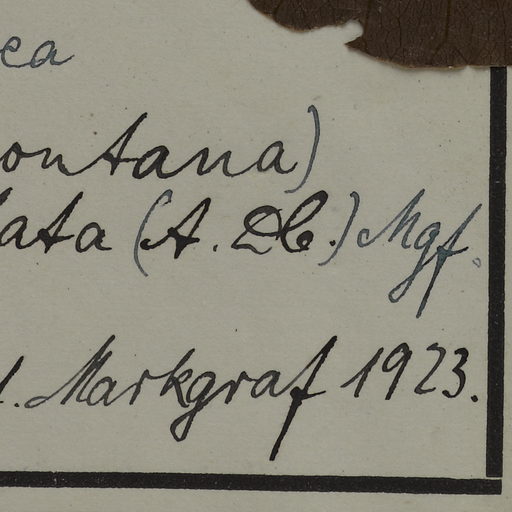 ea
ontana)
lata (A. DC.) Mgf.
. Markgraf 1923.